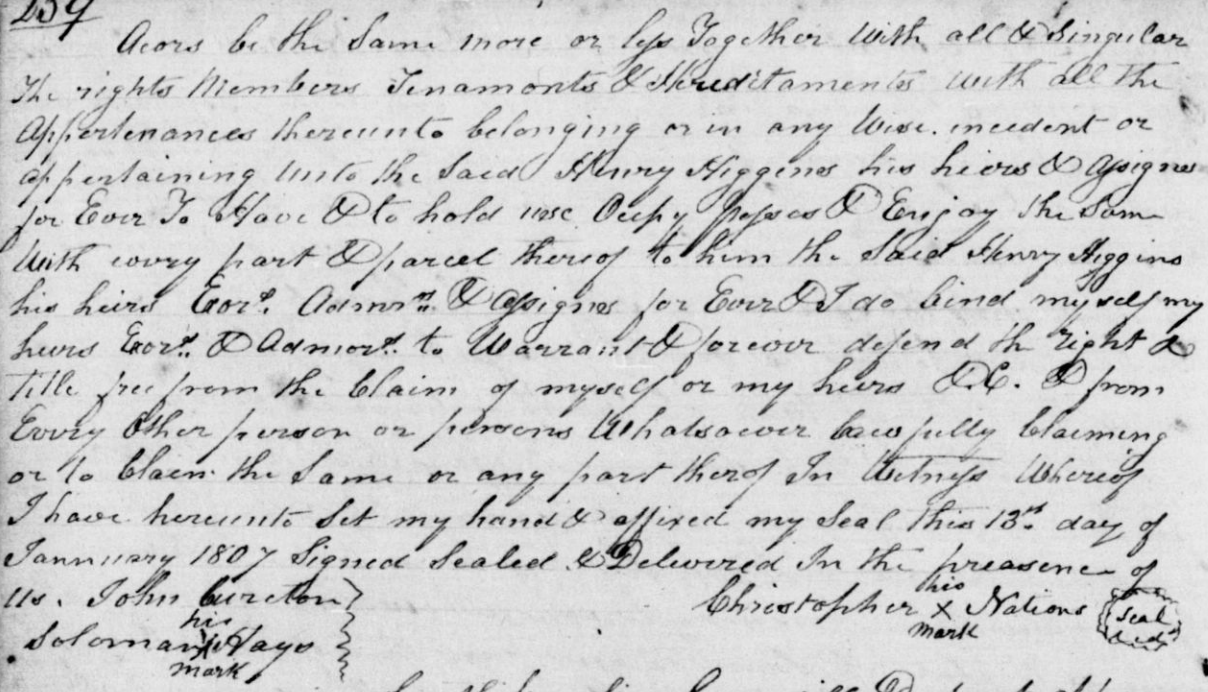 259
Acors be the Same more or less Together With all & Singular
The rights Members Tenamonts & Hereditaments with all the
Appertenances thereunto belonging or in any Wise. incedent or
appertaining Unto the Said Henry Higgins his heirs & assignes
for Ever To Have & to hold use Ocupy posses & Enjoy the Same
With every part & parcel thereof to him the Said Henry Higgins
his heirs Exors. Admrs. & assignes for Ever & I do bind myself my
heirs Exors. & Admors. to Warrant & forever defend the right &
title free from the Claim of myself or my heirs &C. & from
Every Other person or persons Whatsoever lawfully Claiming
or to Claim the Same or any part therof In Witness Whereof
I have hereunto Set my hand & affixed my Seal this 13th day of
Jannuary 1807 Signed Sealed & Delivered In the preasence of
us. John Cureton
his
Soloman X Hays
mark
his
Christopher X Nations
mark
Seal